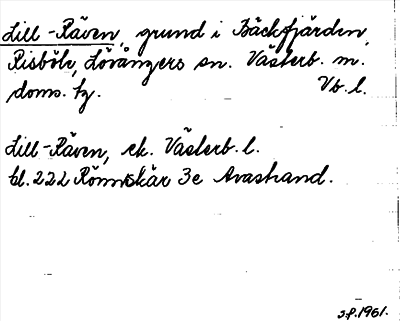 Lill-Räven, grund i Bäckfjärden,
Risböle, Lövångers sn. Västerb. m.
doms. tg. Vb. l.
Lill-Räven, ek. Västerb. l.
bl. 222 Rönnskär 3e Avastrand.
1961.